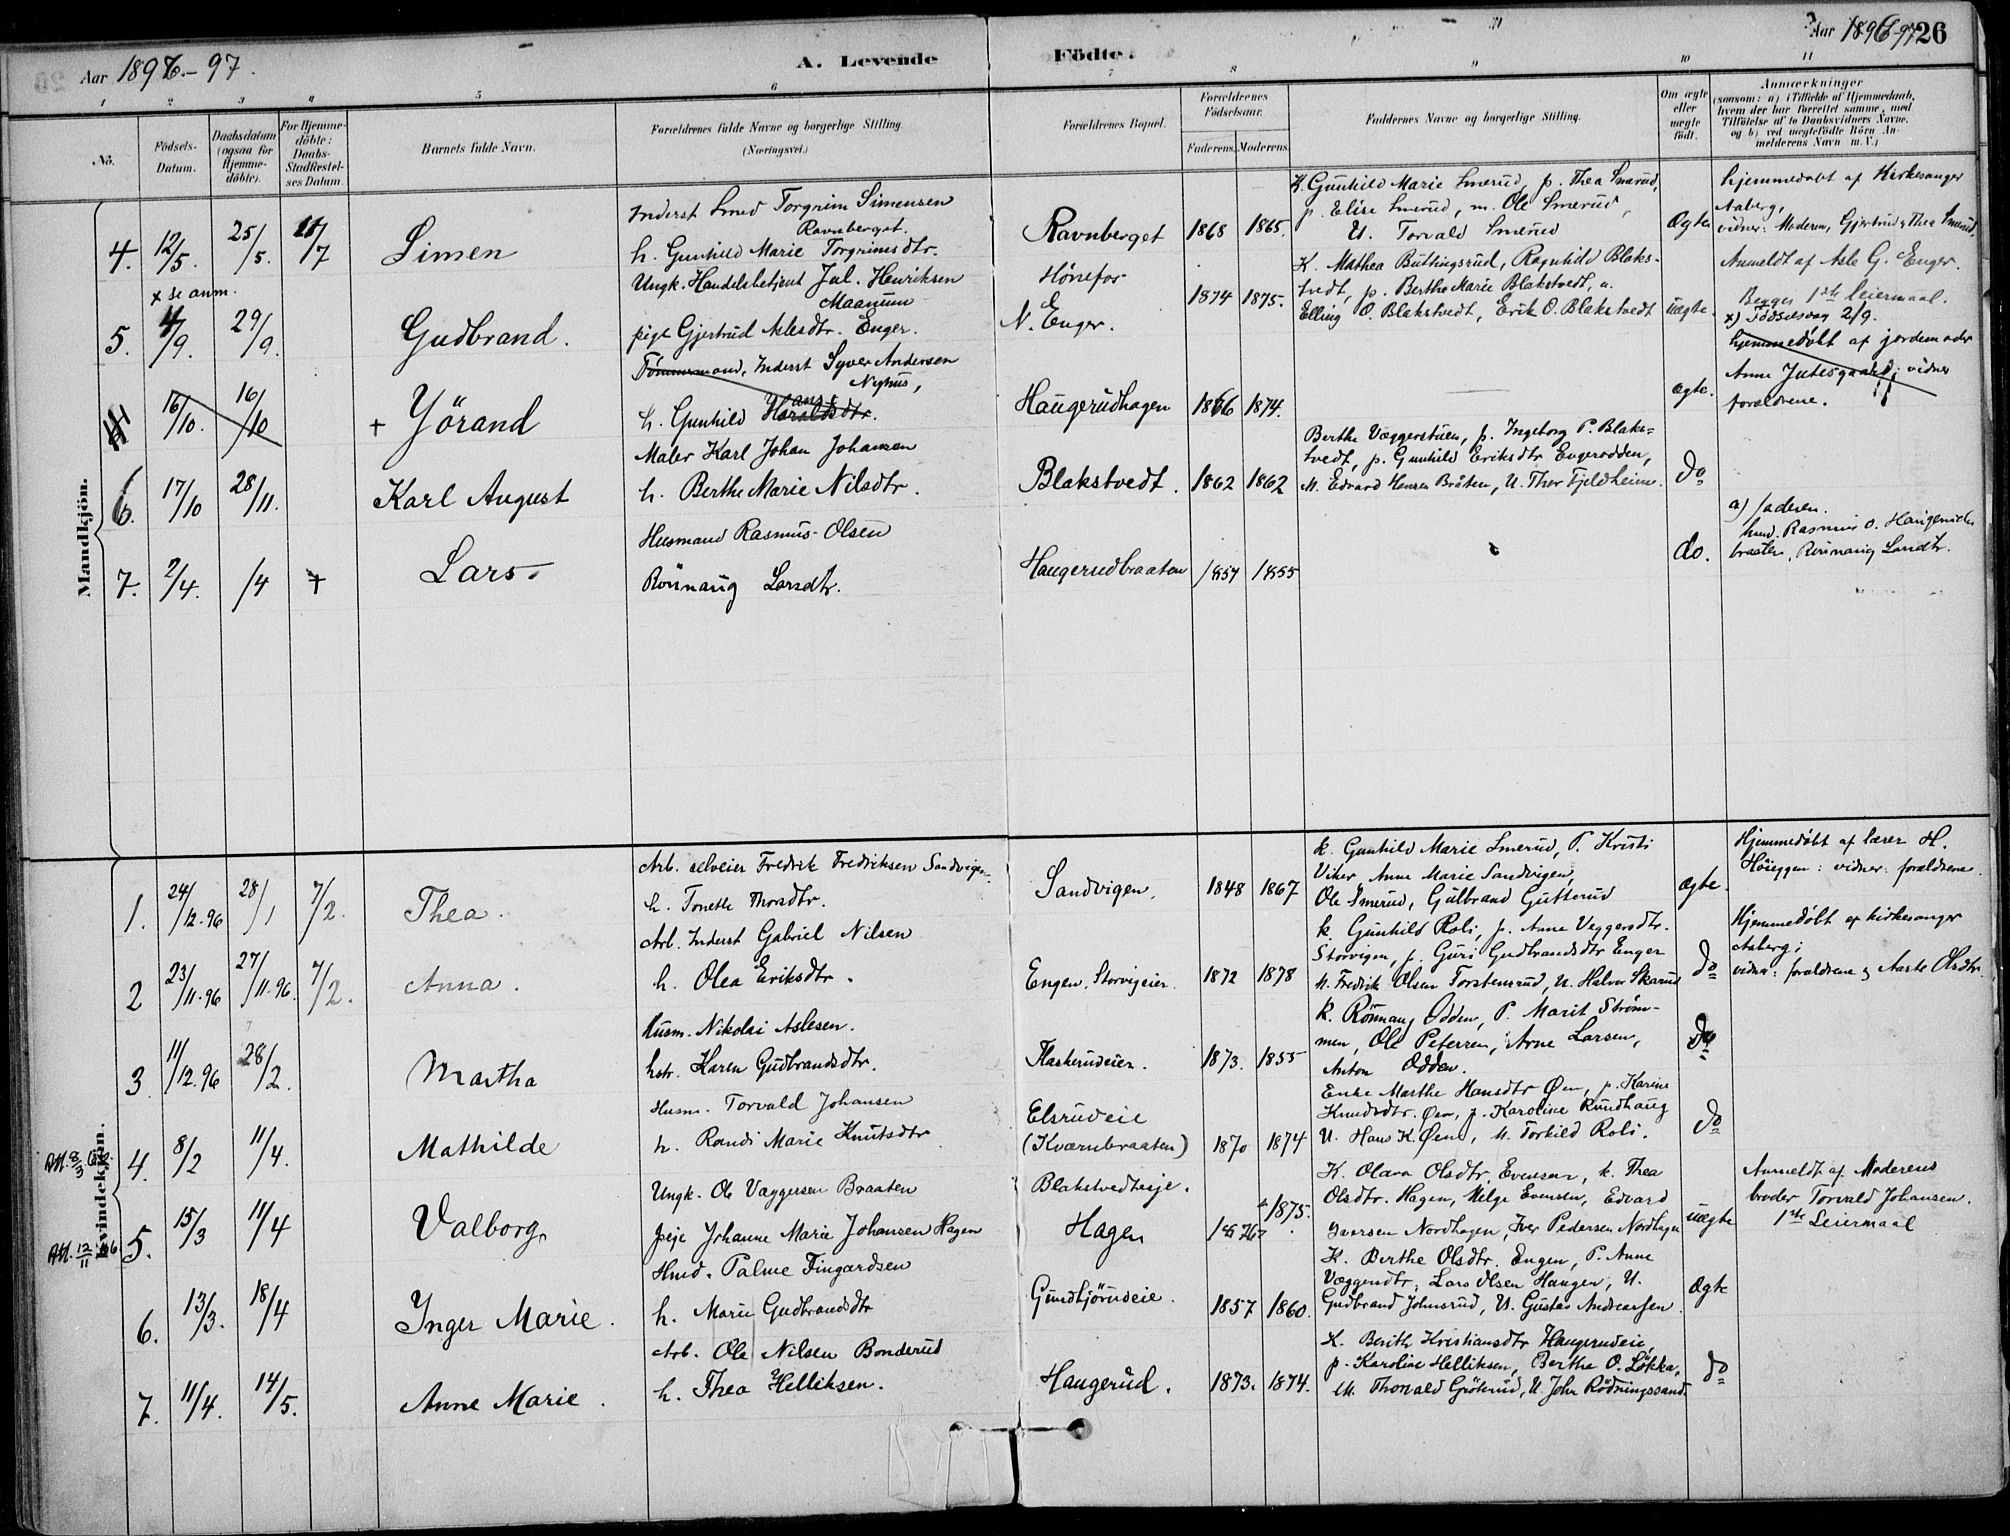 Aar 1896-97.
A. Levende
Födte.
Aar 1896-97
26
1 2 3 4 5 6 7 8 9 10 11
No.
Födsels-Datum.
Daabsdatum (ogsaa for Hjemme-döbte).
For Hjemme-döbte: Daabs-Stadfæstel-ses Datum.
Barnets fulde Navn.
Forældrenes fulde Navne og borgerlige Stilling (Næringsvei.)
Forældrenes Bopæl.
Forældrenes Födselsaar.
Faderens. Moderens.
Faddernes Navne og borgerlige Stilling.
Om ægte eller uægte födt.
Anmærkninger
(saasom: a) i Tilfælde af Hjemmedaab,
hvem der har forrettet samme, med
Tilföielse af to Daabsvidners Navne.
og b) ved uægtefödte Börn An-
melderens Navn m. V.)
Mandkjön.
4. 12/5. 25/5. 7 Simen
Inderst Smed Torgrim Simensen
Ravnberget.
h. Gunhild Marie Torgrimsdtr.
Ravnberget 1868 1865.
K. Gunhild Marie Smerud, p. Thea Smerud,
p. Elise Smerud, m. Ole Smerud,
U. Torvald Smerud
Ægte
hjemmedøbt af Kirkesanger
Aaberg,
vidner: Moderen, Gjertrud, Thea Smerud.
x se anm.
5. 4/9. 29/9. Gudbrand.
Ungk. Handelsbetjent Jul. Henriksen
Maanum
pige Gjertrud Aslesdtr. Enger.
Hønefos
N. Enger. 1874 1875.
K. Mathea Buttingsrud, Ragnhild Blaks-
tvedt, p. Berthe Marie Blakstvedt, u.
Elling O. Blakstvedt, Erik O. Blakstvedt
uægte.
Anmeldt af Asle G. Enger.
Begges 1ste leiermaal.
x) Fødselsdag 2/9.
16/10. 16/10 + Yörand
Tømmermand, Inderst Syver Andersen
Nyhus,
h. Gunhild Haraldsdtr.
Haugerudhagen 1866 1874.
ægte.
hjemmedøbt af jordemoder
Anne Julesgaard; vidner
forældrene.
6. 17/10 28/11. Karl August
Maler Karl Johan Johansen
h. Berthe Marie Nilsdtr.
Blakstvedt. 1862 1862
Berthe Væggerstuen, p. Ingeborg P. Blaks=
tvedt, p. Gunhild Eriksdtr Engerodden,
M. Edvard Hansen Bråten, U. Thor Fjeldheim.
do
7. 2/4. /4 + Lars
Husmand Rasmus Olsen
Rönnaug Larsdtr.
Haugerudbraaten 1857 1855
do.
a) faderen.
husm. Rasmus O. Haugeruds
braaten, Rönnaug Larsdtr.
Kvindekjön.
1. 24/12.96 28/1 7/2. Thea.
Arb. selveier Fredrik Fredriksen Sandvigen
h. Tonette Thorsdtr.
Sandvigen. 1848 1867
k. Gunhild Marie Smerud, P. Kristi
Viker, Anne Marie Sandvigen,
Ole Smerud, Gulbrand Gutterud
ægte.
Hjemmedøbt af lærer H.
Høieggen: vidner: forældrene.
2 23/11.96 27/11.96. 7/2. Anna.
Arb. Inderst Gabriel Nilsen
h. Olea Eriksdtr.
Engen, Storvigeier. 1872 1878
k. Gunhild Roli, p. Anne Veggersdtr.
Storvigen, p. Guri Gudbrandsdtr Enger
M. Fredrik Olsen Torstensrud, U. Halvor Skarud
do
Hjemmedøbt af kirkesanger
Aaberg;
vidner: forældrene og Aaste Olsdtr.
3. 11/12.96 28/2. Martha
Husm. Nikolai Aslesen.
hstr. Karen Gudbrandsdtr.
Flaskerudeier. 1873. 1855
k. Rönnaug Odden, P. Marit Strøm-
men, Ole Petersen, Arne Larsen,
Anton Odden.
do
4. 8/2 11/4. Mathilde
Husm. Torvald Johansen
h. Randi Marie Knutsdtr
Elsrudeie
(Kværnbraaten) 1870 1874
Enke Marthe Hansdtr Øen, p. Karine
Knudsdtr. Øen, p. Karoline Rundhaug
U. Hans K. Øen, M. Torkild Roli.
do
5. 15/3 11/4 Valborg,
Ungk. Ole Væggersen Braaten
pige Johanne Marie Johansen Hagen
Blakstvedteje.
Hagen 1876 1875.
K. Olava Olsdtr. Evensen, k. Thea
Olsdtr. Hagen, Helge Evensen, Edvard
Iversen Nordhagen, Iver Pedersen Nordhagen
uægte
Anmeldt af Moderens
broder Torvald Johansen.
1ste Leiermaal
6. 13/3. 18/4 Inger Marie.
Hmd. Palme Fingardsen
h. Marie Gudbrandsdtr
Gundbjörudeie. 1857 1860.
K. Berthe Olsdtr. Engen, P. Anne
Væggersdtr, Lars Olsen Haugen, U.
Gudbrand Johnsrud, U. Gustav Andreassen.
Ægte
7. 11/4. 14/5. Anne Marie.
Arb. Ole Nilsen Bonderud
h. Thea Helliksen.
Haugerud. 1873. 1874.
K. Berith Kristiansdtr Haugerudeie,
p. Karoline Helliksen, Berthe O. Løkka,
M. Thorvald Grøterud, U. John Rødningssand.
do